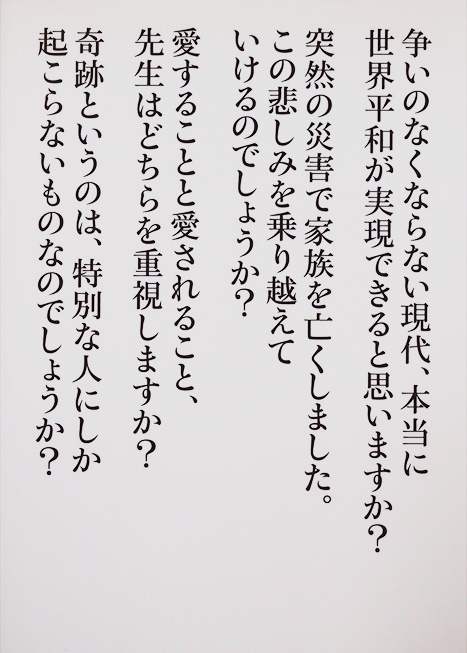 争いのなくならない現代、本当に
世界平和が実現できると思いますか？
突然の災害で家族を亡くしました。
この悲しみを乗り越えて
いけるのでしょうか？
愛することと愛されること、
先生はどちらを重視しますか？
奇跡というのは、特別な人にしか
起こらないものなのでしょうか？